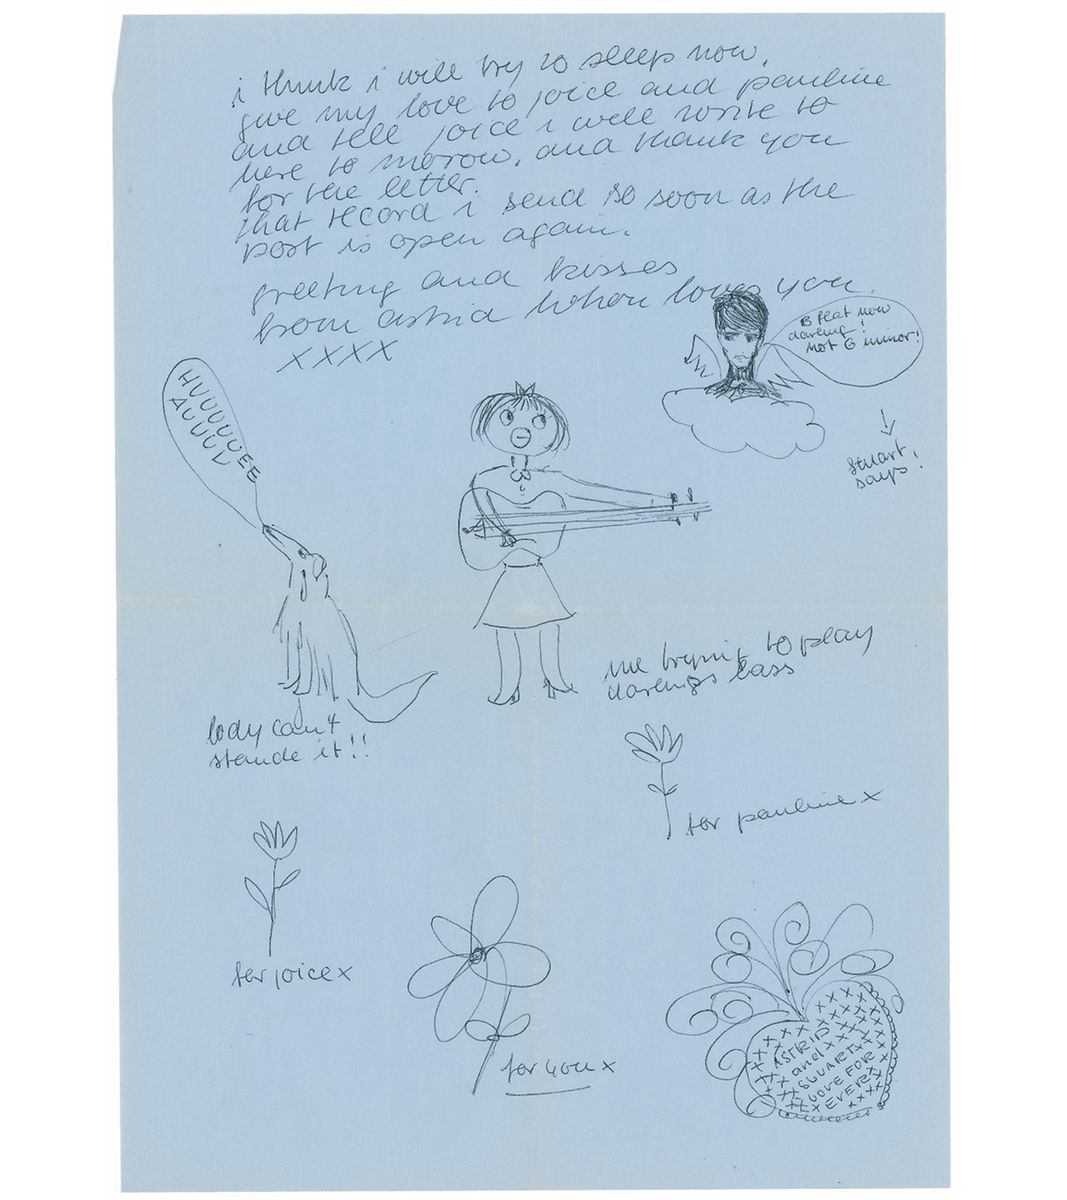 i think i will try to sleep now,
give my love to joice and pauline
and tell joice i will write to
here to morow, and thank you
for the letter.
that record i send so soon as the
post is open again.
greeting and kisses
from astrid whou loves you.
xxxx
B flat now
darling!
not G minor!
stuart,
says!
HUUUUUEE
AUUUU
me trying to play
darlings bass
body can't
stande it!!
for pauline x
for joice x
for you x
ASTRID
and
STUART
LOVE FOR
EVER